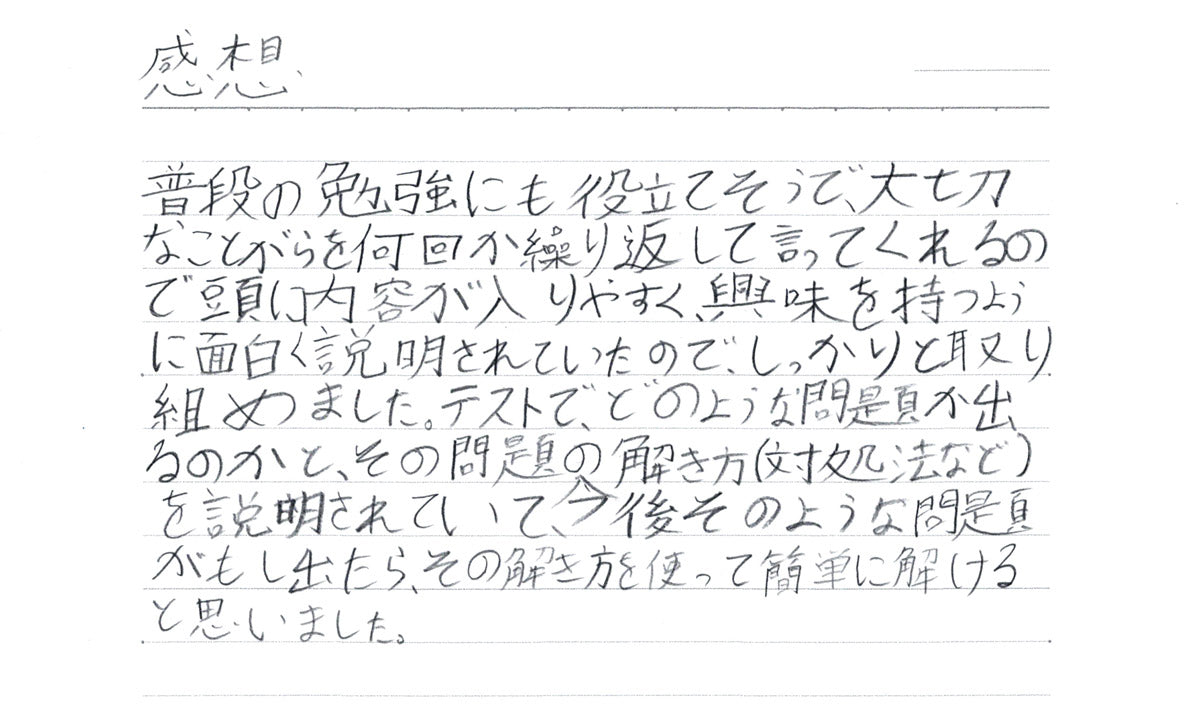 感想
普段の勉強にも役立てそうで、大切
なことがらを何回か繰り返して言ってくれるの
で頭に内容が入りやすく、興味を持つよう
に面白く説明されていたので、しっかりと取り
組めました。テストで、どのような問題が出
るのかと、その問題の解き方(対処法など)
を説明されていて、今後そのような問題
がもし出たら、その解き方を使って簡単に解ける
と思いました。